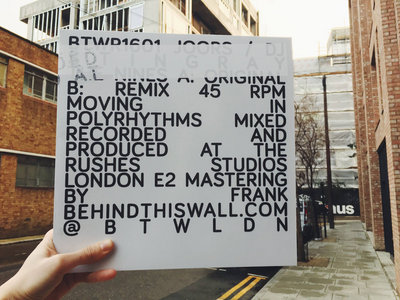 BTWR1601 JOORS / DJ
ED
STINGRAY
AL NINES A: ORIGINAL
B: REMIX 45 RPM
MOVING IN
POLYRHYTHMS MIXED
RECORDED AND
PRODUCED AT THE
RUSHES STUDIOS
LONDON E2 MASTERING
BY FRANK
BEHINDTHISWALL.COM
@BTWLDN